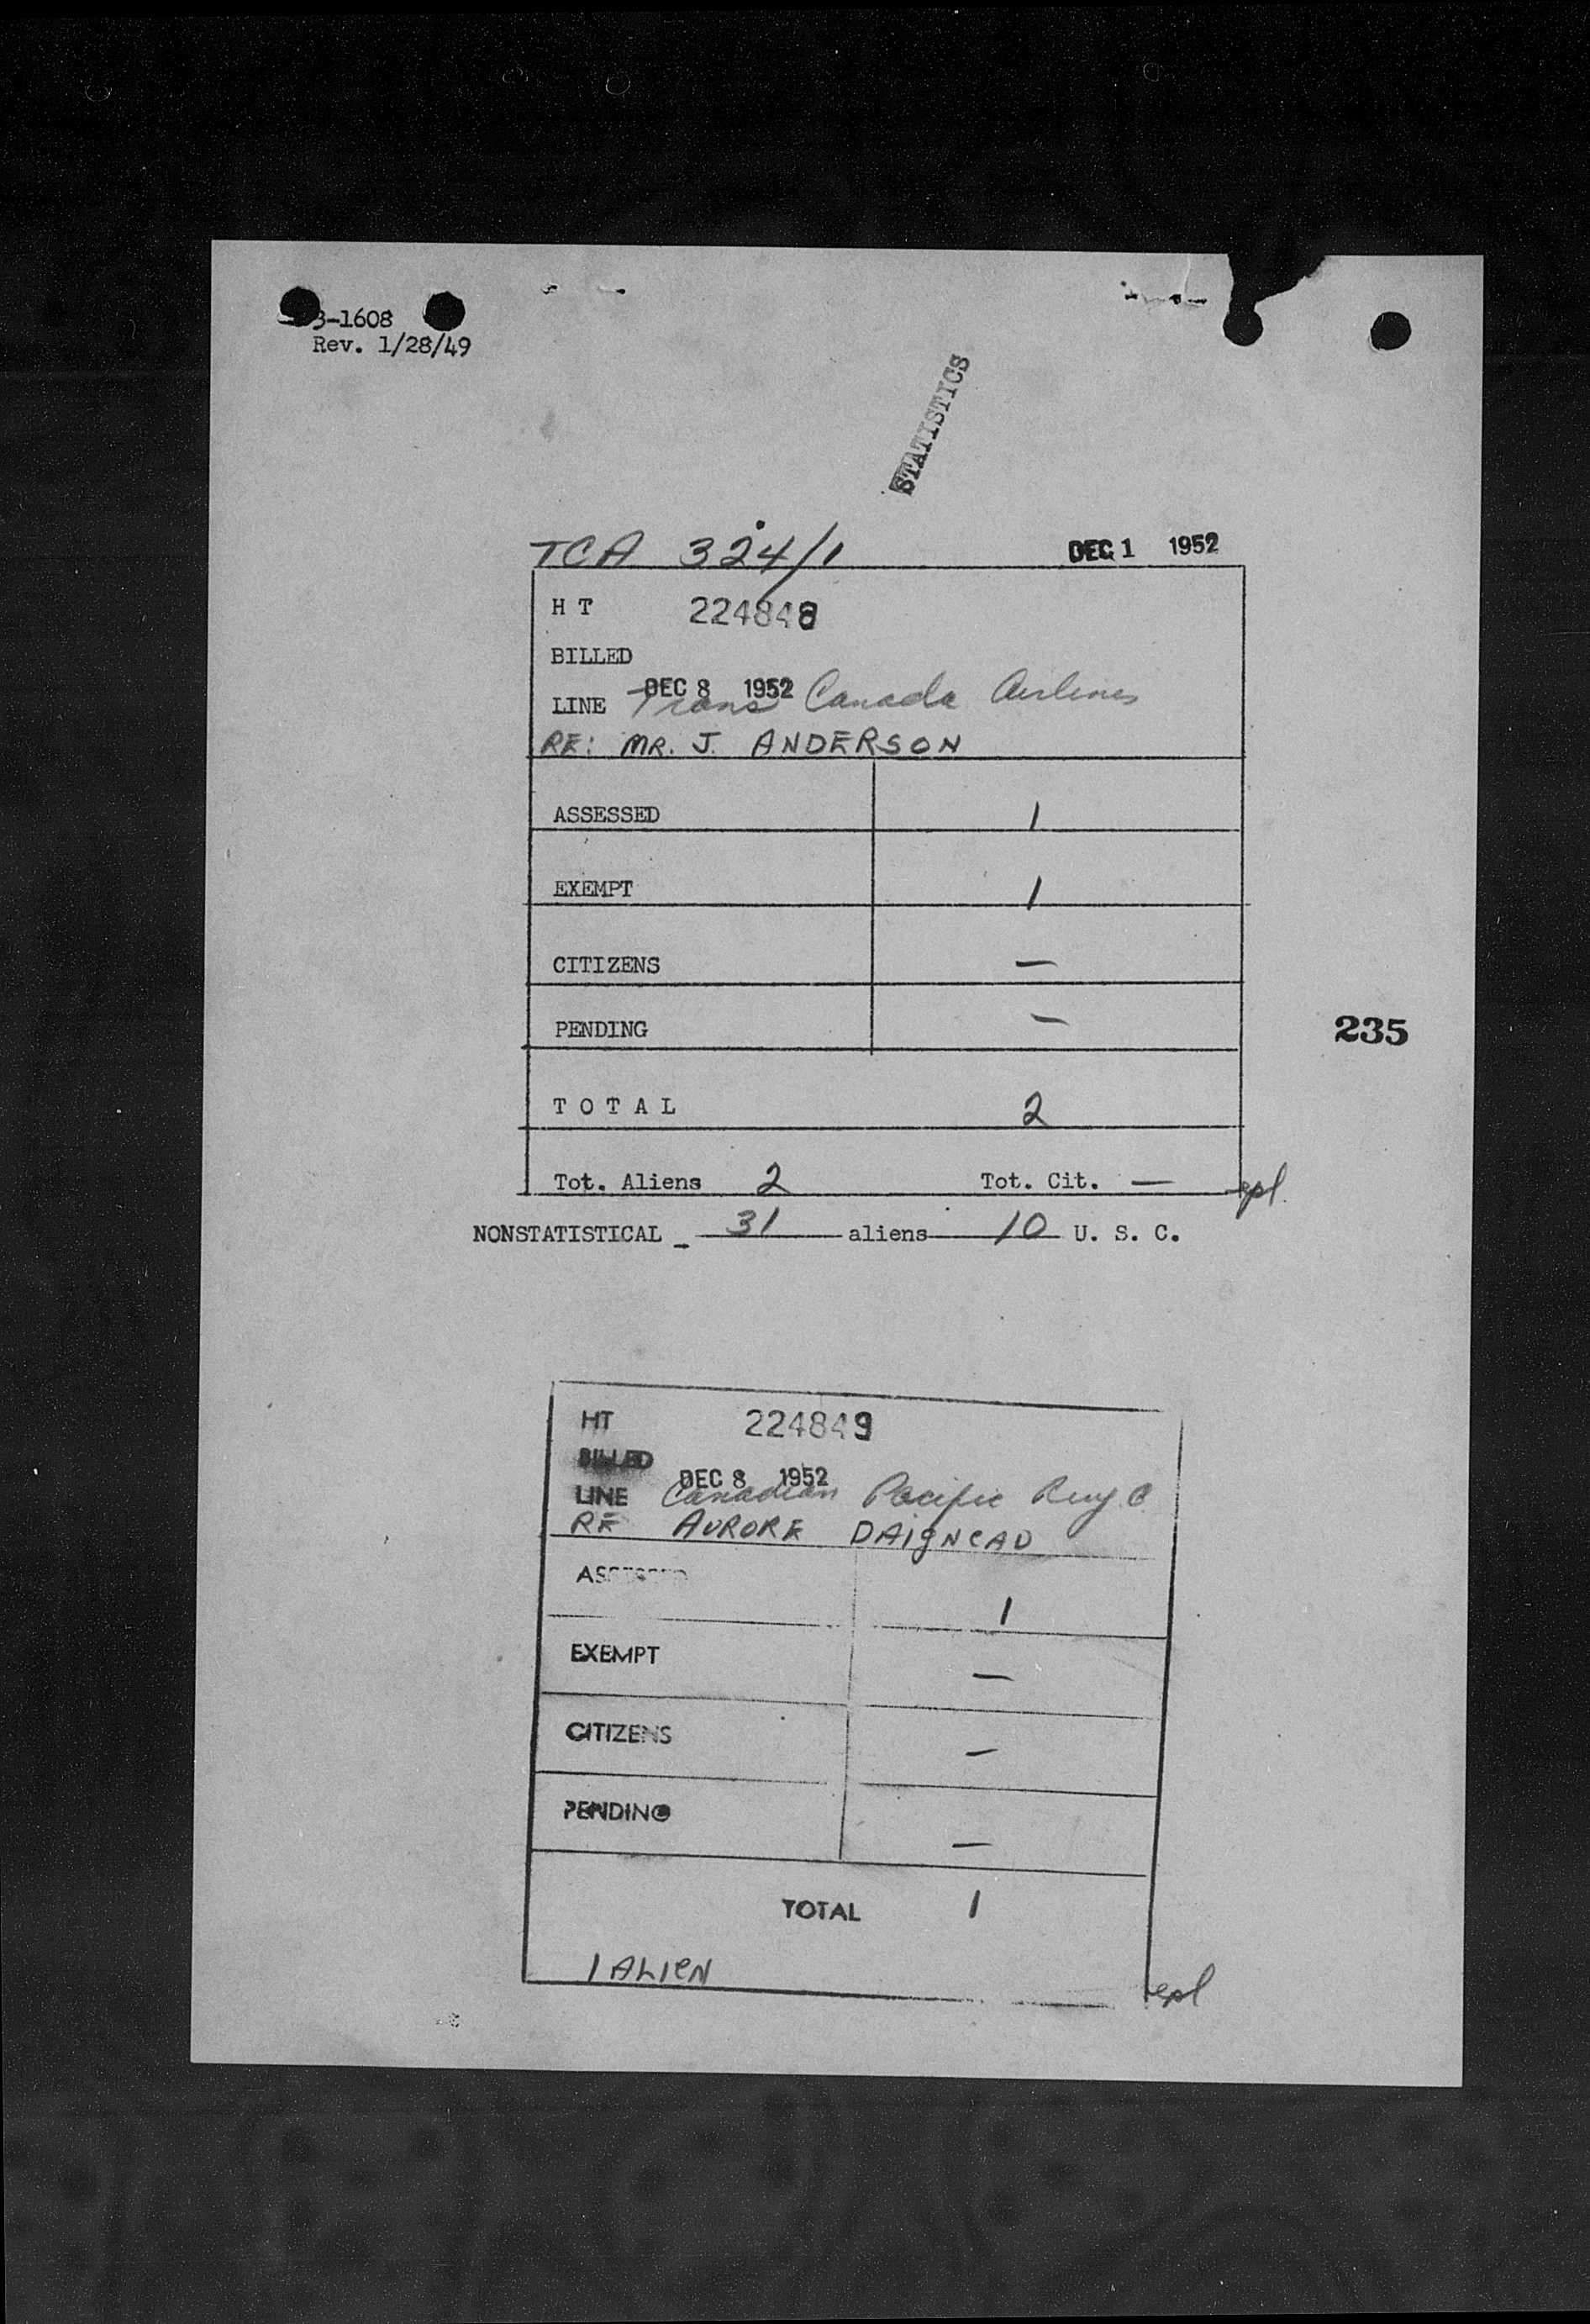 3-1608
Rev. 1/28/49
STATISTICS
TCA 324/1 DEC 1 1952
H T 224848
BILLED
DEC 8 1952
LINE Trans Canada Airlines
RE: MR. J. ANDERSON
ASSESSED 1
EXEMPT 1
CITIZENS —
PENDING —
235
T O T A L 2
Tot. Aliens 2 Tot. Cit. —
epl
NONSTATISTICAL - 31 aliens 10 U. S. C.
HT 224849
BILLED
DEC 8 1952
LINE Canadian Pacific Rwy. C
RE AURORE DAIGNEAU
ASSESSED 1
EXEMPT —
CITIZENS —
PENDING —
TOTAL 1
1 ALIEN
epl